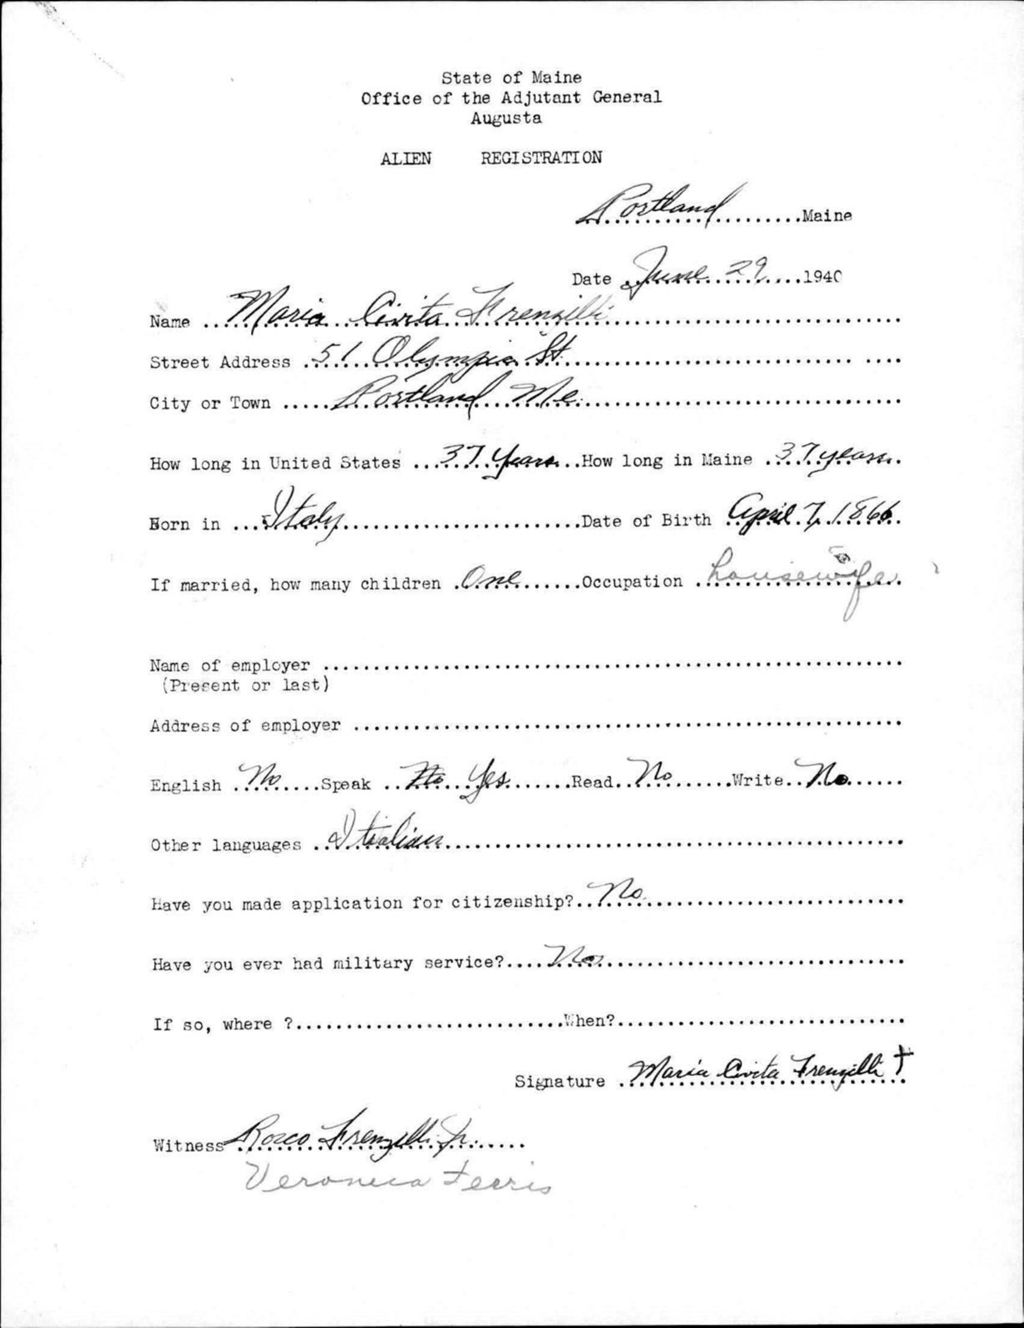 State of Maine
Office of the Adjutant General
Augusta
ALIEN REGISTRATION
Portland.........Maine
Date June 29....1940
Name ..Maria Civita Frenzilli
Street Address .51 Olympia St.
City or Town .....Portland Me.
How long in United States ...37 Years..How long in Maine .37 years.
Born in ...Italy............................Date of Birth .April 7, 1866.
If married, how many children .One......Occupation .housewife.
Name of employer ................................................
(Present or last)
Address of employer ................................................
English .No.....Speak ..No..Yes.......Read..No.......Write..No......
Other languages ..Italian................................................
Have you made application for citizenship?..No............................
Have you ever had military service?....No................................
If so, where ?............................When?............................
Signature .Maria Civita Frenzilli †
Witness Rosco Frenzilli Jr.......
Veronica Ferris